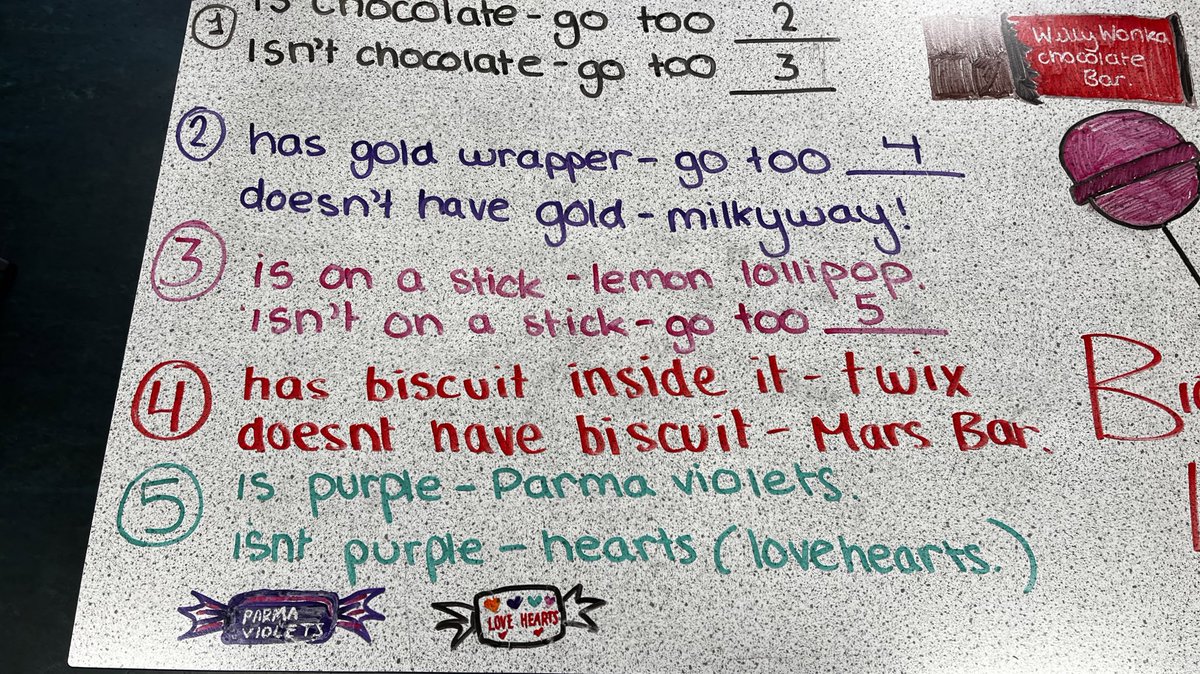 ① is chocolate - go too 2
isn't chocolate - go too 3
② has gold wrapper - go too 4
doesn't have gold - milkyway!
③ is on a stick - lemon lollipop.
isn't on a stick - go too 5
④ has biscuit inside it - twix
doesnt have biscuit - Mars Bar.
⑤ is purple - Parma violets.
isnt purple - hearts (lovehearts.)
PARMA
VIOLETS
LOVE HEARTS
Willy Wonka
chocolate
Bar.